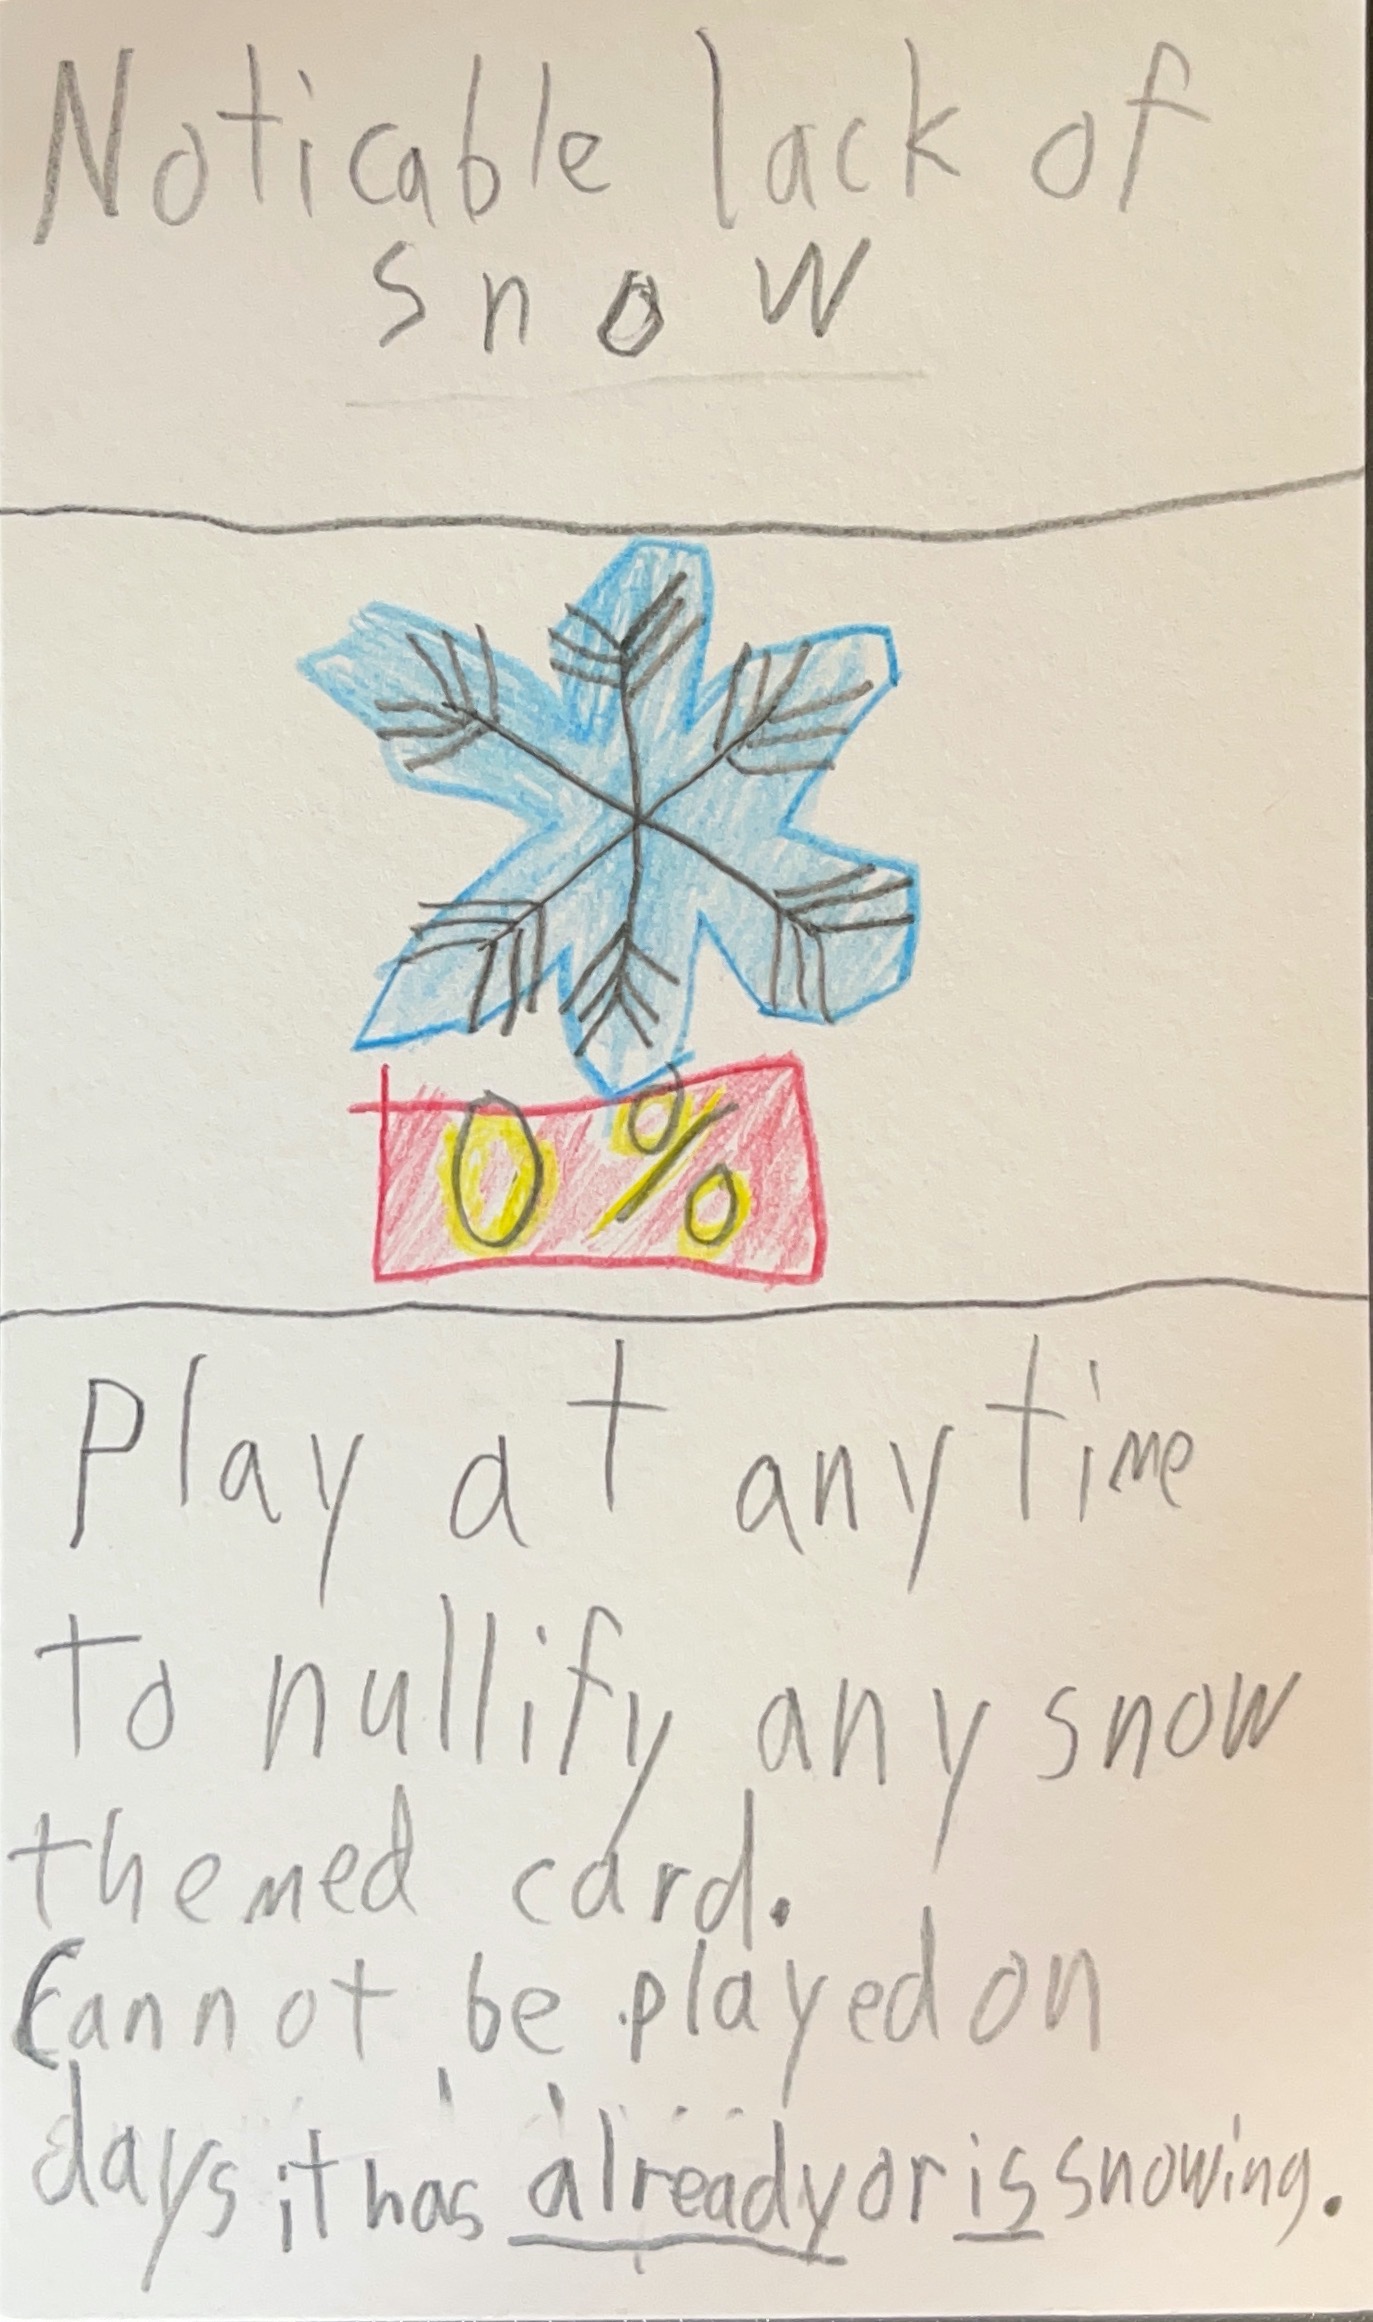 Noticable lack of
snow
0%
Play at anytime
to nullify any snow
themed card.
Cannot be played on
days it has already or is snowing.